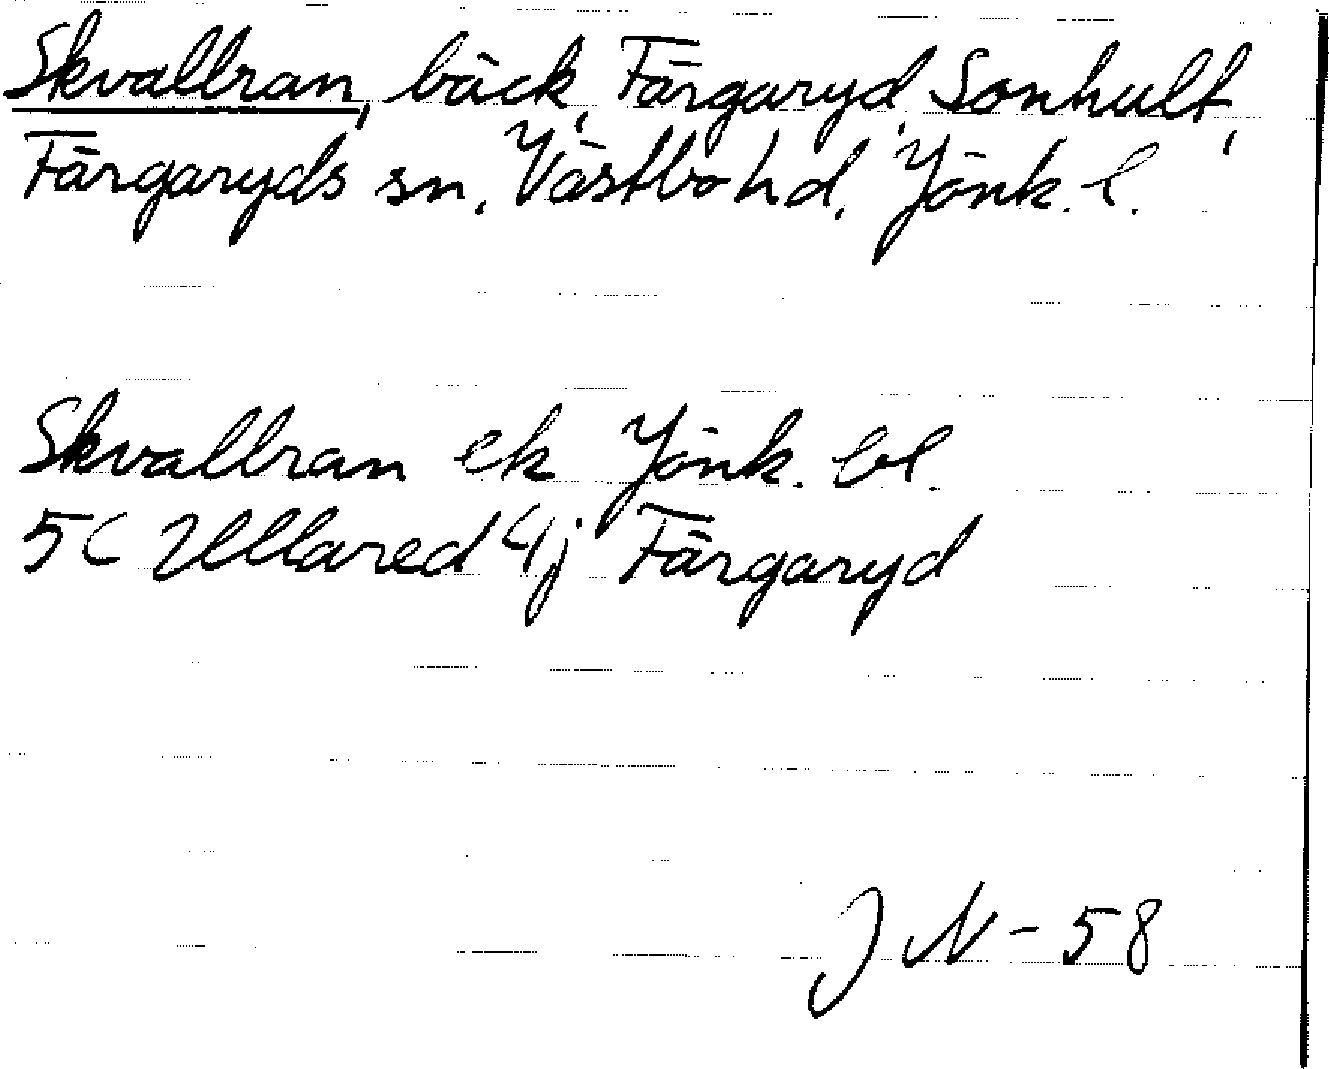 Skvallran, bäck, Färgaryd, Sonhult,
Färgaryds sn, Västbo hd, Jönk. l.
Skvallran ek Jönk. bl.
5C Ullared 4j Färgaryd
JN-58